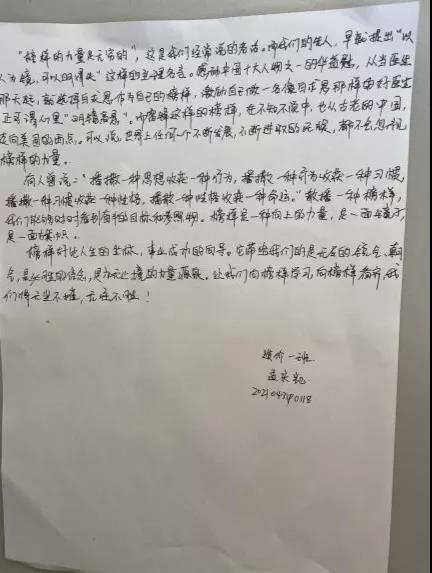 "榜样的力量是无穷的"，这是我们经常说的老话。而我们的先人，早就提出"以
人为镜，可以明得失"这样的至理名言。感动中国十大人物之一的华益慰，从当医生
那天起，就选择白求恩作为自己的榜样，激励自己做一名像白求恩那样的好医生
正可谓心里"明镜高悬"。而雷锋这样的榜样，在不知不觉中，也从古老的中国，
走向美国的西点。可以说，世界上任何一个不断发展，不断进取的民族，都不会忽视
榜样的力量。
有人曾说："播撒一种思想收获一种行为，播撒一种行为收获一种习惯，
播撒一种习惯收获一种性格，播撒一种性格收获一种命运。"散播一种榜样，
我们能够时时看到自己的目标和参照物。榜样是一种向上的力量，是一面镜子，
是一面旗帜。
榜样好比人生的坐标，事业成功的向导。它带给我们的是无名的
是必胜的信念，是力量源泉。让我们向榜样学习，向榜样看齐，我
们将无坚不摧，无往不胜！
造价一班